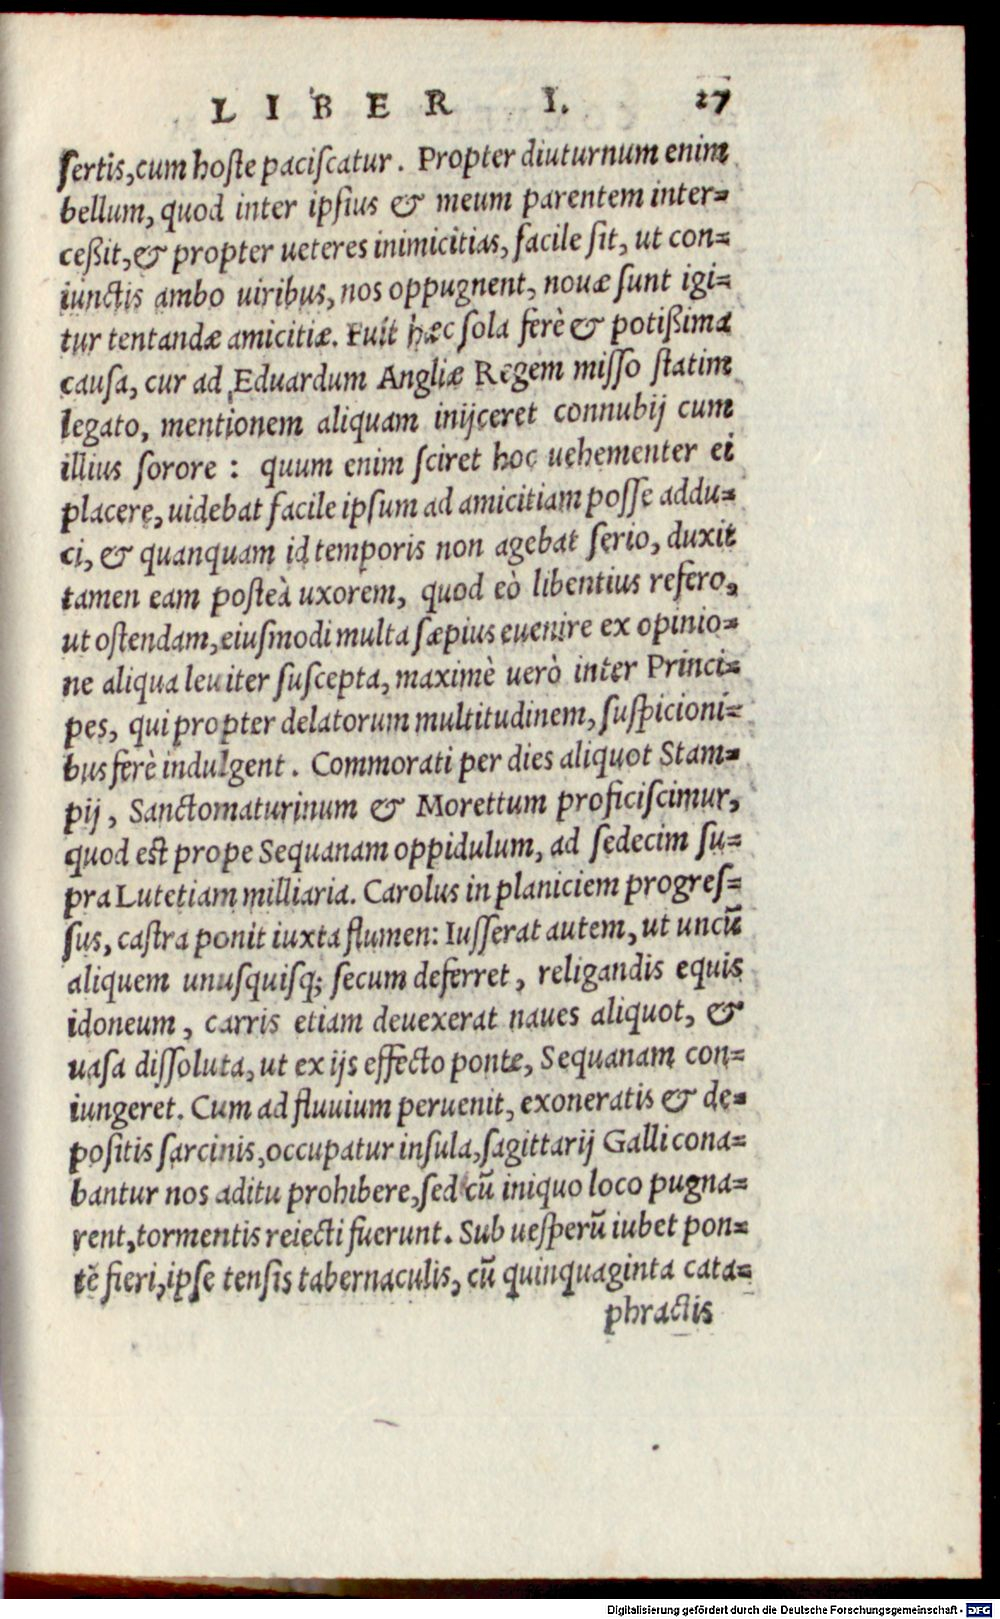 LIBER I. 27
sertis, cum hoste paciscatur. Propter diuturnum enim
bellum, quod inter ipsius & meum parentem inter-
ceßit, & propter ueteres inimicitias, facile sit, ut con-
iunctis ambo uiribus, nos oppugnent, nouæ sunt igi-
tur tentandæ amicitiæ. Fuit hæc sola ferè & potißima
causa, cur ad Eduardum Angliæ Regem misso statim
legato, mentionem aliquam inijceret connubij cum
illius sorore : quum enim sciret hoc uehementer ei
placere, uidebat facile ipsum ad amicitiam posse addu-
ci, & quanquam id temporis non agebat serio, duxit
tamen eam posteà uxorem, quod eò libentius refero,
ut ostendam, eiusmodi multa sæpius euenire ex opinio-
ne aliqua leuiter suscepta, maximè uerò inter Princi-
pes, qui propter delatorum multitudinem, suspicioni-
bus ferè indulgent. Commorati per dies aliquot Stam-
pij, Sanctomaturinum & Morettum proficiscimur,
quod est prope Sequanam oppidulum, ad sedecim su-
pra Lutetiam milliaria. Carolus in planiciem progres-
sus, castra ponit iuxta flumen: Iusserat autem, ut uncū
aliquem unusquisq; secum deferret, religandis equis
idoneum, carris etiam deuexerat naues aliquot, &
uasa dissoluta, ut ex ijs effecto ponte, Sequanam con-
iungeret. Cum ad fluuium peruenit, exoneratis & de-
positis sarcinis, occupatur insula, sagittarij Galli cona-
bantur nos aditu prohibere, sed cū iniquo loco pugna-
rent, tormentis reiecti fuerunt. Sub uesperū iubet pon-
tē fieri, ipse tensis tabernaculis, cū quinquaginta cata-
phractis
Digitalisierung gefördert durch die Deutsche Forschungsgemeinschaft - DFG